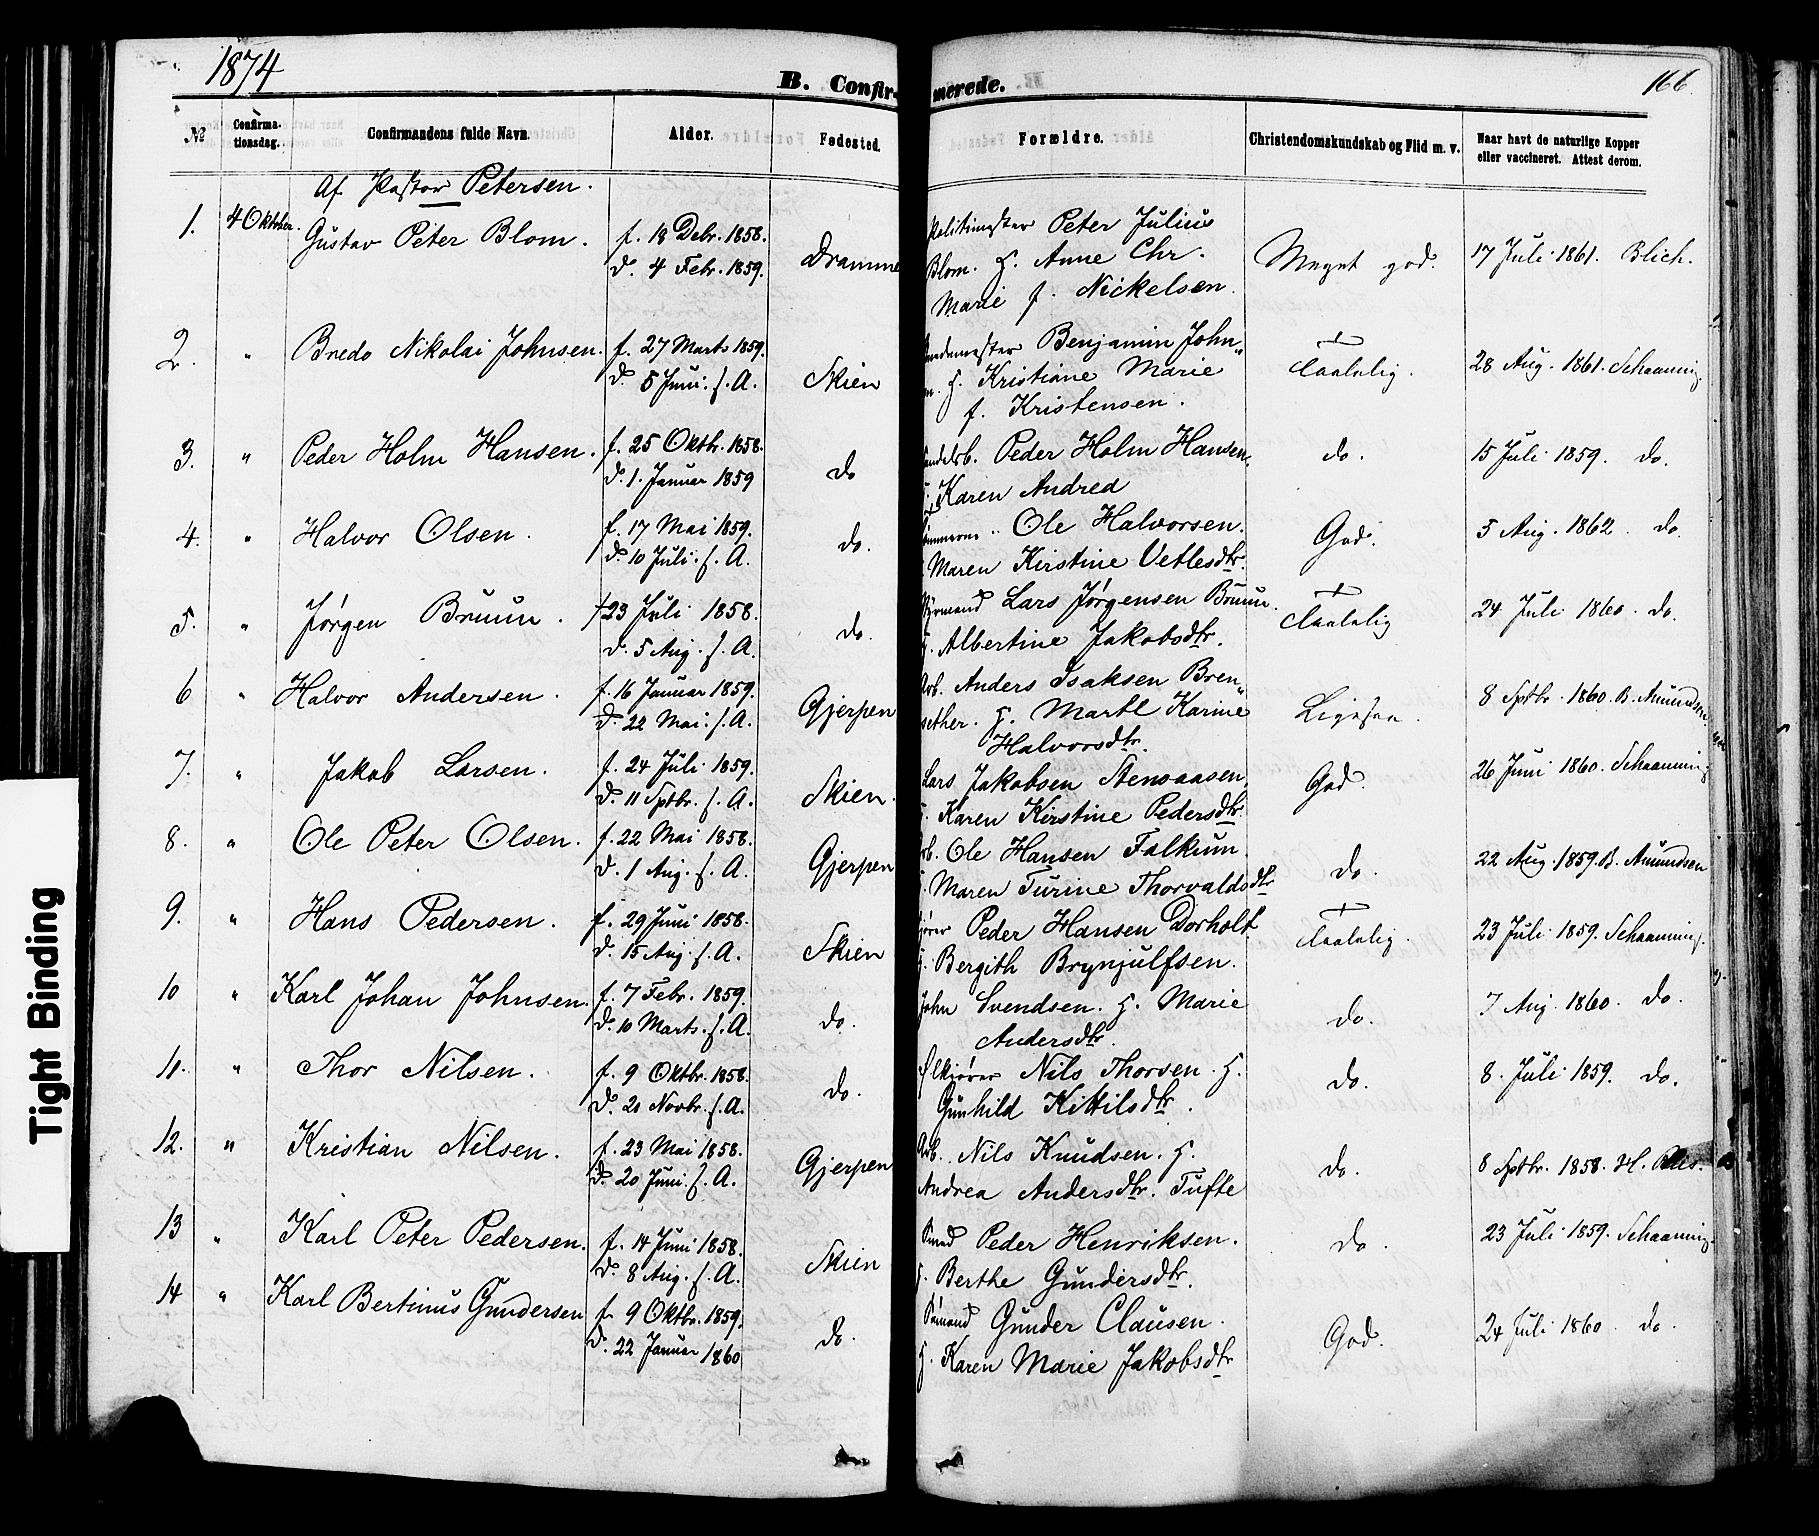 1874
B. Confirmerede.
166.
№
Confirmationsdag.
Confirmandens fulde Navn.
Alder.
Fødested.
Forældre.
Christendomskundskab og Flid m. v.
Naar havt de naturlige Kopper eller vaccineret. Attest derom.
Af Pastor Petersen.
1. 4 Oktber. Gustav Peter Blom. f. 18 Debr. 1858. Politimester Peter Julius
d. 4 Febr. 1859. Dramme Blom. H. Anne Chr. Meget god. 17 Juli 1861. Blich.
Marie f. Nickelsen.
2. " Bredo Nikolai Johnsen. f. 27 Marts 1859. Benjamin John„
d. 5 Juni. s. A. Skien H. Kristiane Marie Taalelig. 28 Aug. 1861. Schaanning.
f. Kristensen.
3. " Peder Holm Hansen. f. 25 Oktbr. 1858. Handelsb. Peder Holm Hansen. do. 15 Juli 1859. do.
d. 1. Januar 1859 do H. Karen Andrea
4. " Halvor Olsen. f. 17 Mai 1859. Ole Halvorsen. God. 5 Aug. 1862. do.
d. 10 Juli. s. A. do. Maren Kirstine Vetlesdtr.
5. " Jørgen Bruun. f 23 Juli 1858. Lars Jørgensen Bruun. Taalelig 24 Juli 1860. do.
d. 5 Aug. s. A. do. H. Albertine Jakobsdtr.
6 " Halvor Andersen. f. 16 Januar 1859. Arb. Anders Isaksen Bren„
d. 22 Mai. s. A. Gjerpen sether. H. Marthe Karine Ligesaa. 8 Sptbr. 1860. B. Amundsen.
Halvorsdtr.
7. " Jakob Larsen. f. 24 Juli 1859. Lars Jakobsen Stensaasen, God. 26 Juni 1860. Schaanning
d. 11 Sptbr. s. A. Skien. H. Karen Kirstine Pedersdtr.
8. " Ole Peter Olsen. f. 22 Mai 1858. Arb. Ole Hansen Falkum
d. 1 Aug. s. A. Gjerpen H. Maren Turine Thorvaldsdtr do. 22 Aug. 1859. B. Amundsen
9. " Hans Pedersen. f. 29 Juni 1858. Peder Hansen Dorholt Taalelig. 23 Juli 1859. Schaanning.
d. 15 Aug. s. A. Skien H. Bergith Brynjulfsen.
10 " Karl Johan Johnsen. f. 7 Febr. 1859. John Svendsen. H. Marie do. 7 Aug. 1860. do.
d. 10 Marts. s. A. do. Andersdtr.
11. " Thor Nilsen. f. 9 Oktbr. 1858. Nils Thorsen. H. do. 8. Juli 1859. do.
d. 20 Novbr. s. A. do. Gunhild Kittilsdtr.
12. " Kristian Nilsen. f. 23 Mai 1858. Arb. Nils Knudsen. H.
d. 20 Juni. s. A. Gjerpen Andrea Andersdtr. Tufte do. 8 Sptbr. 1858. H.
13 " Karl Peter Pedersen. f. 14 Juni 1858. Smed Peder Henriksen. do. 23 Juli 1859. Schaanning.
d. 8 Aug. s. A. Skien H. Berthe Gundersdtr.
14 " Karl Bertinus Gundersen f. 9 Oktbr. 1859. Sømand Gunder Clausen. God. 24 Juli 1860. do.
d. 22 Januar 1860 do. H. Karen Marie Jakobsdtr
Tight Binding